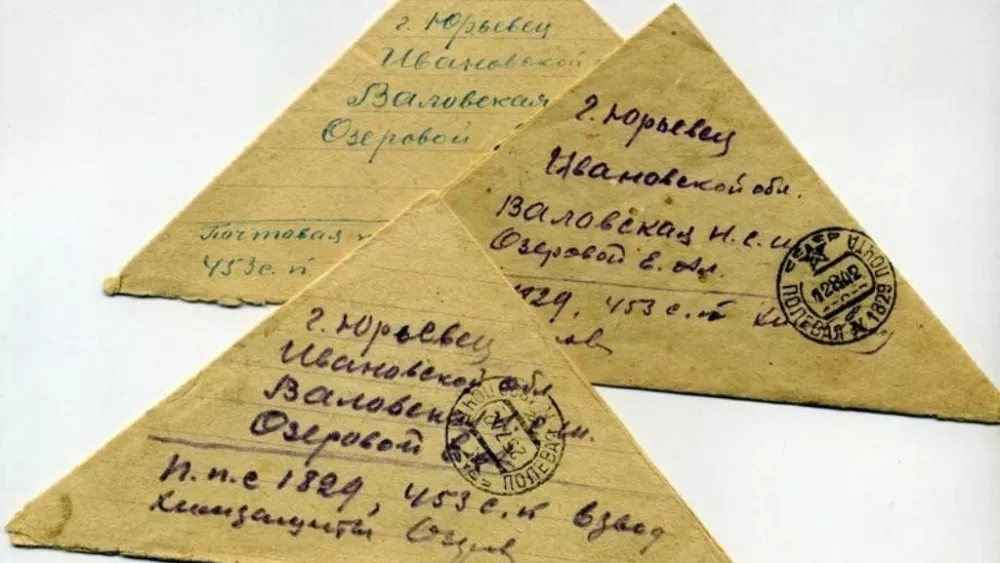 г. Юрьевец
Ивановской
Валовская
Озеровой
Почтовая
453 с.п.
г. Юрьевец
Ивановской обл.
Валовская н.с.ш.
Озеровой Е. Ал.
1829, 453 с.п
ПОЛЕВАЯ ПОЧТА № 1829
12 8 42
г. Юрьевец
Ивановской обл
Валовская н.с.ш.
Озеровой Е.
П.п.с 1829, 453 с.п взвод
Химзащиты
ПОЛЕВАЯ